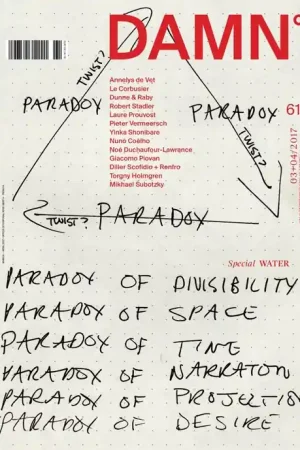 DAMN°
TWIST?
PARADOX
Annelys de Vet
Le Corbusier
Dunne & Raby
Robert Stadler
Laure Prouvost
Pieter Vermeersch
Yinka Shonibare
Nuno Coelho
Noé Duchaufour-Lawrance
Giacomo Piovan
Diller Scofidio + Renfro
Torgny Holmgren
Mikhael Subotzky
PARADOX
TWIST?
61
03+04/2017
TWIST? PARADOX
Special WATER
PARADOX OF DIVISIBILITY
PARADOX OF SPACE
PARADOX OF TIME
PARADOX OF NARRATON
PARADOX OF PROJECTIO
PARADOX OF DESIRE